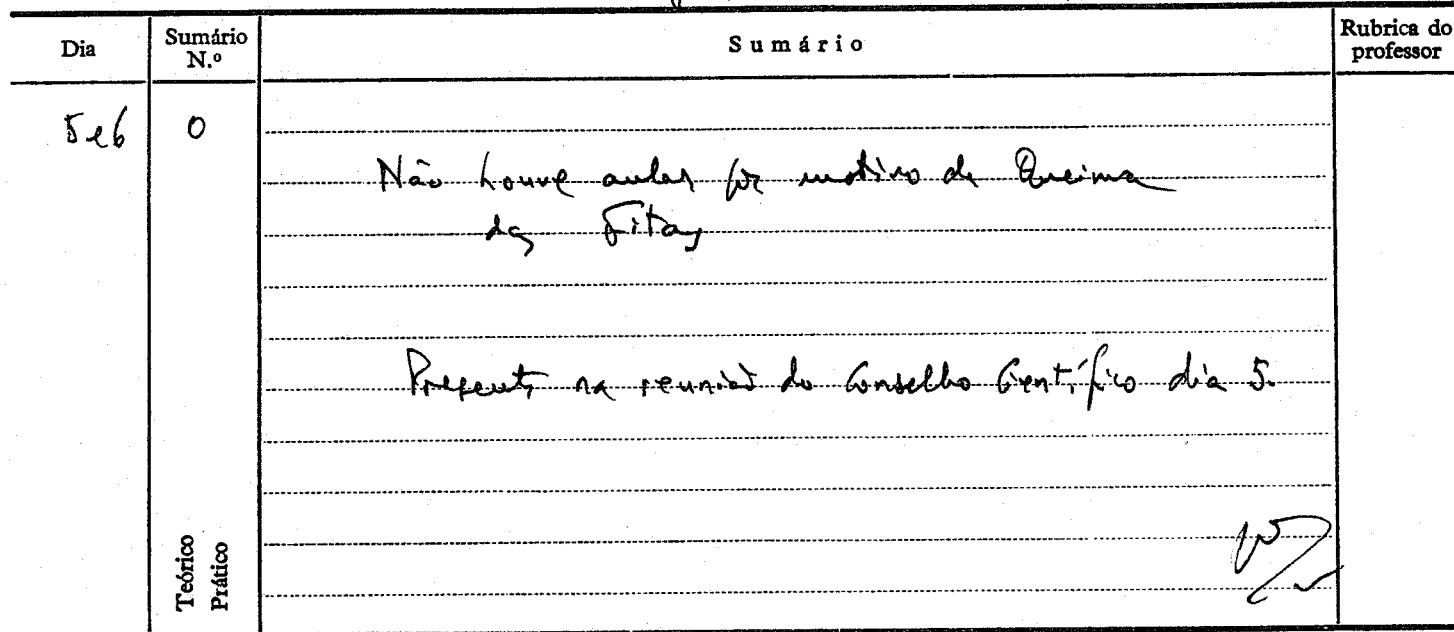 Dia Sumário N.º Sumário Rubrica do professor
5 e 6 0
Não houve aulas por motivo da Queima
das Fitas
Presente na reunião do Conselho Científico dia 5.
Teórico
Prático